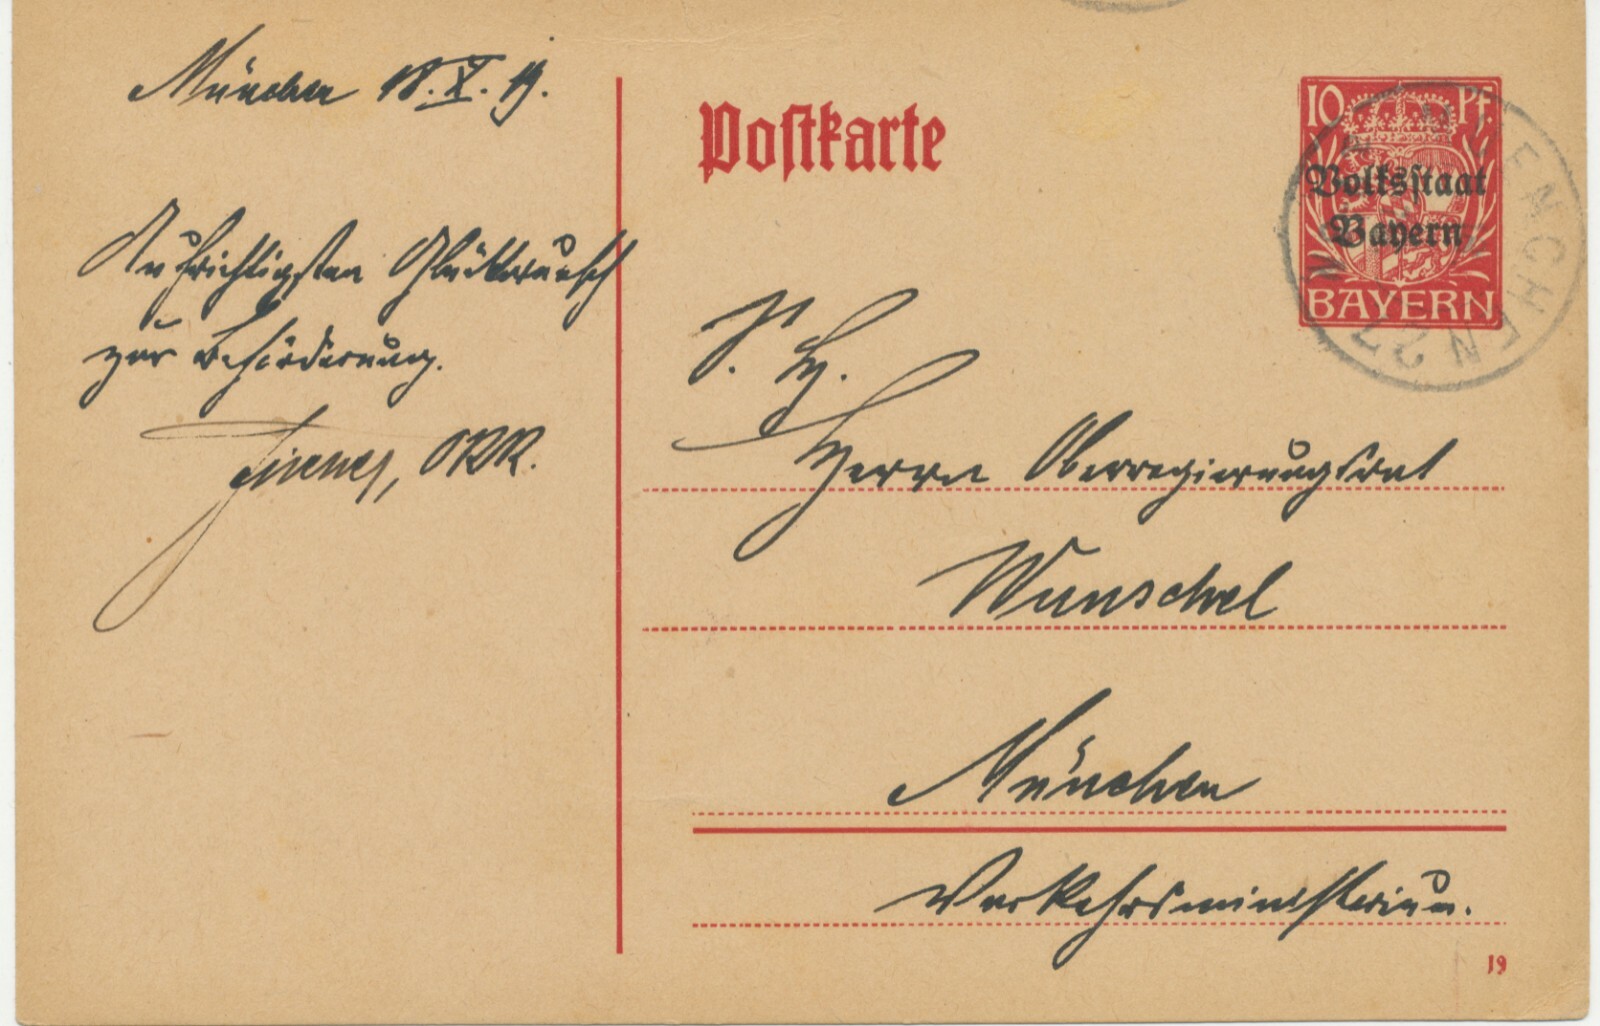 München 18. X. 19.
Aufrichtigsten Glückwunsch
zur Beförderung.
ORR.
Postkarte
10 Pf.
Volksstaat
Bayern
BAYERN
MUENCHEN 27
S. H.
Herrn Oberregierungsrat
Wunschel
München
Verkehrsministerium.
19